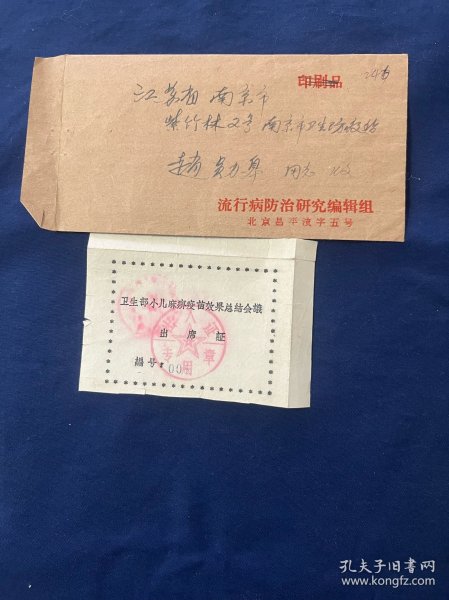 印刷品
江苏省 南京市
紫竹林2号 南京市卫生防疫站
同志 收
流行病防治研究编辑组
北京昌平流字五号
卫生部小儿麻痹疫苗效果总结会議
出席証
編号:00
专用章
孔夫子旧书网
www.kongfz.com